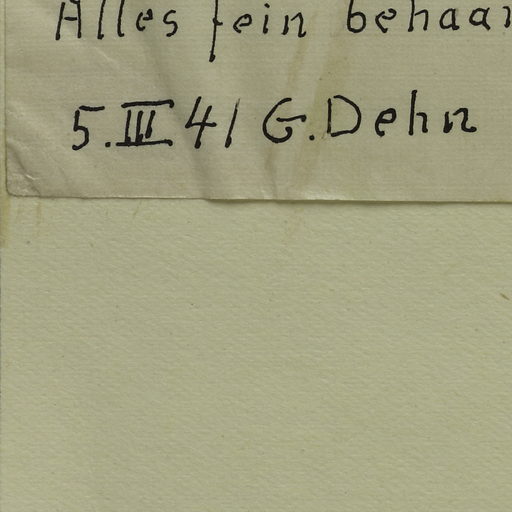 Alles fein behaar
5.III 41 G. Dehn